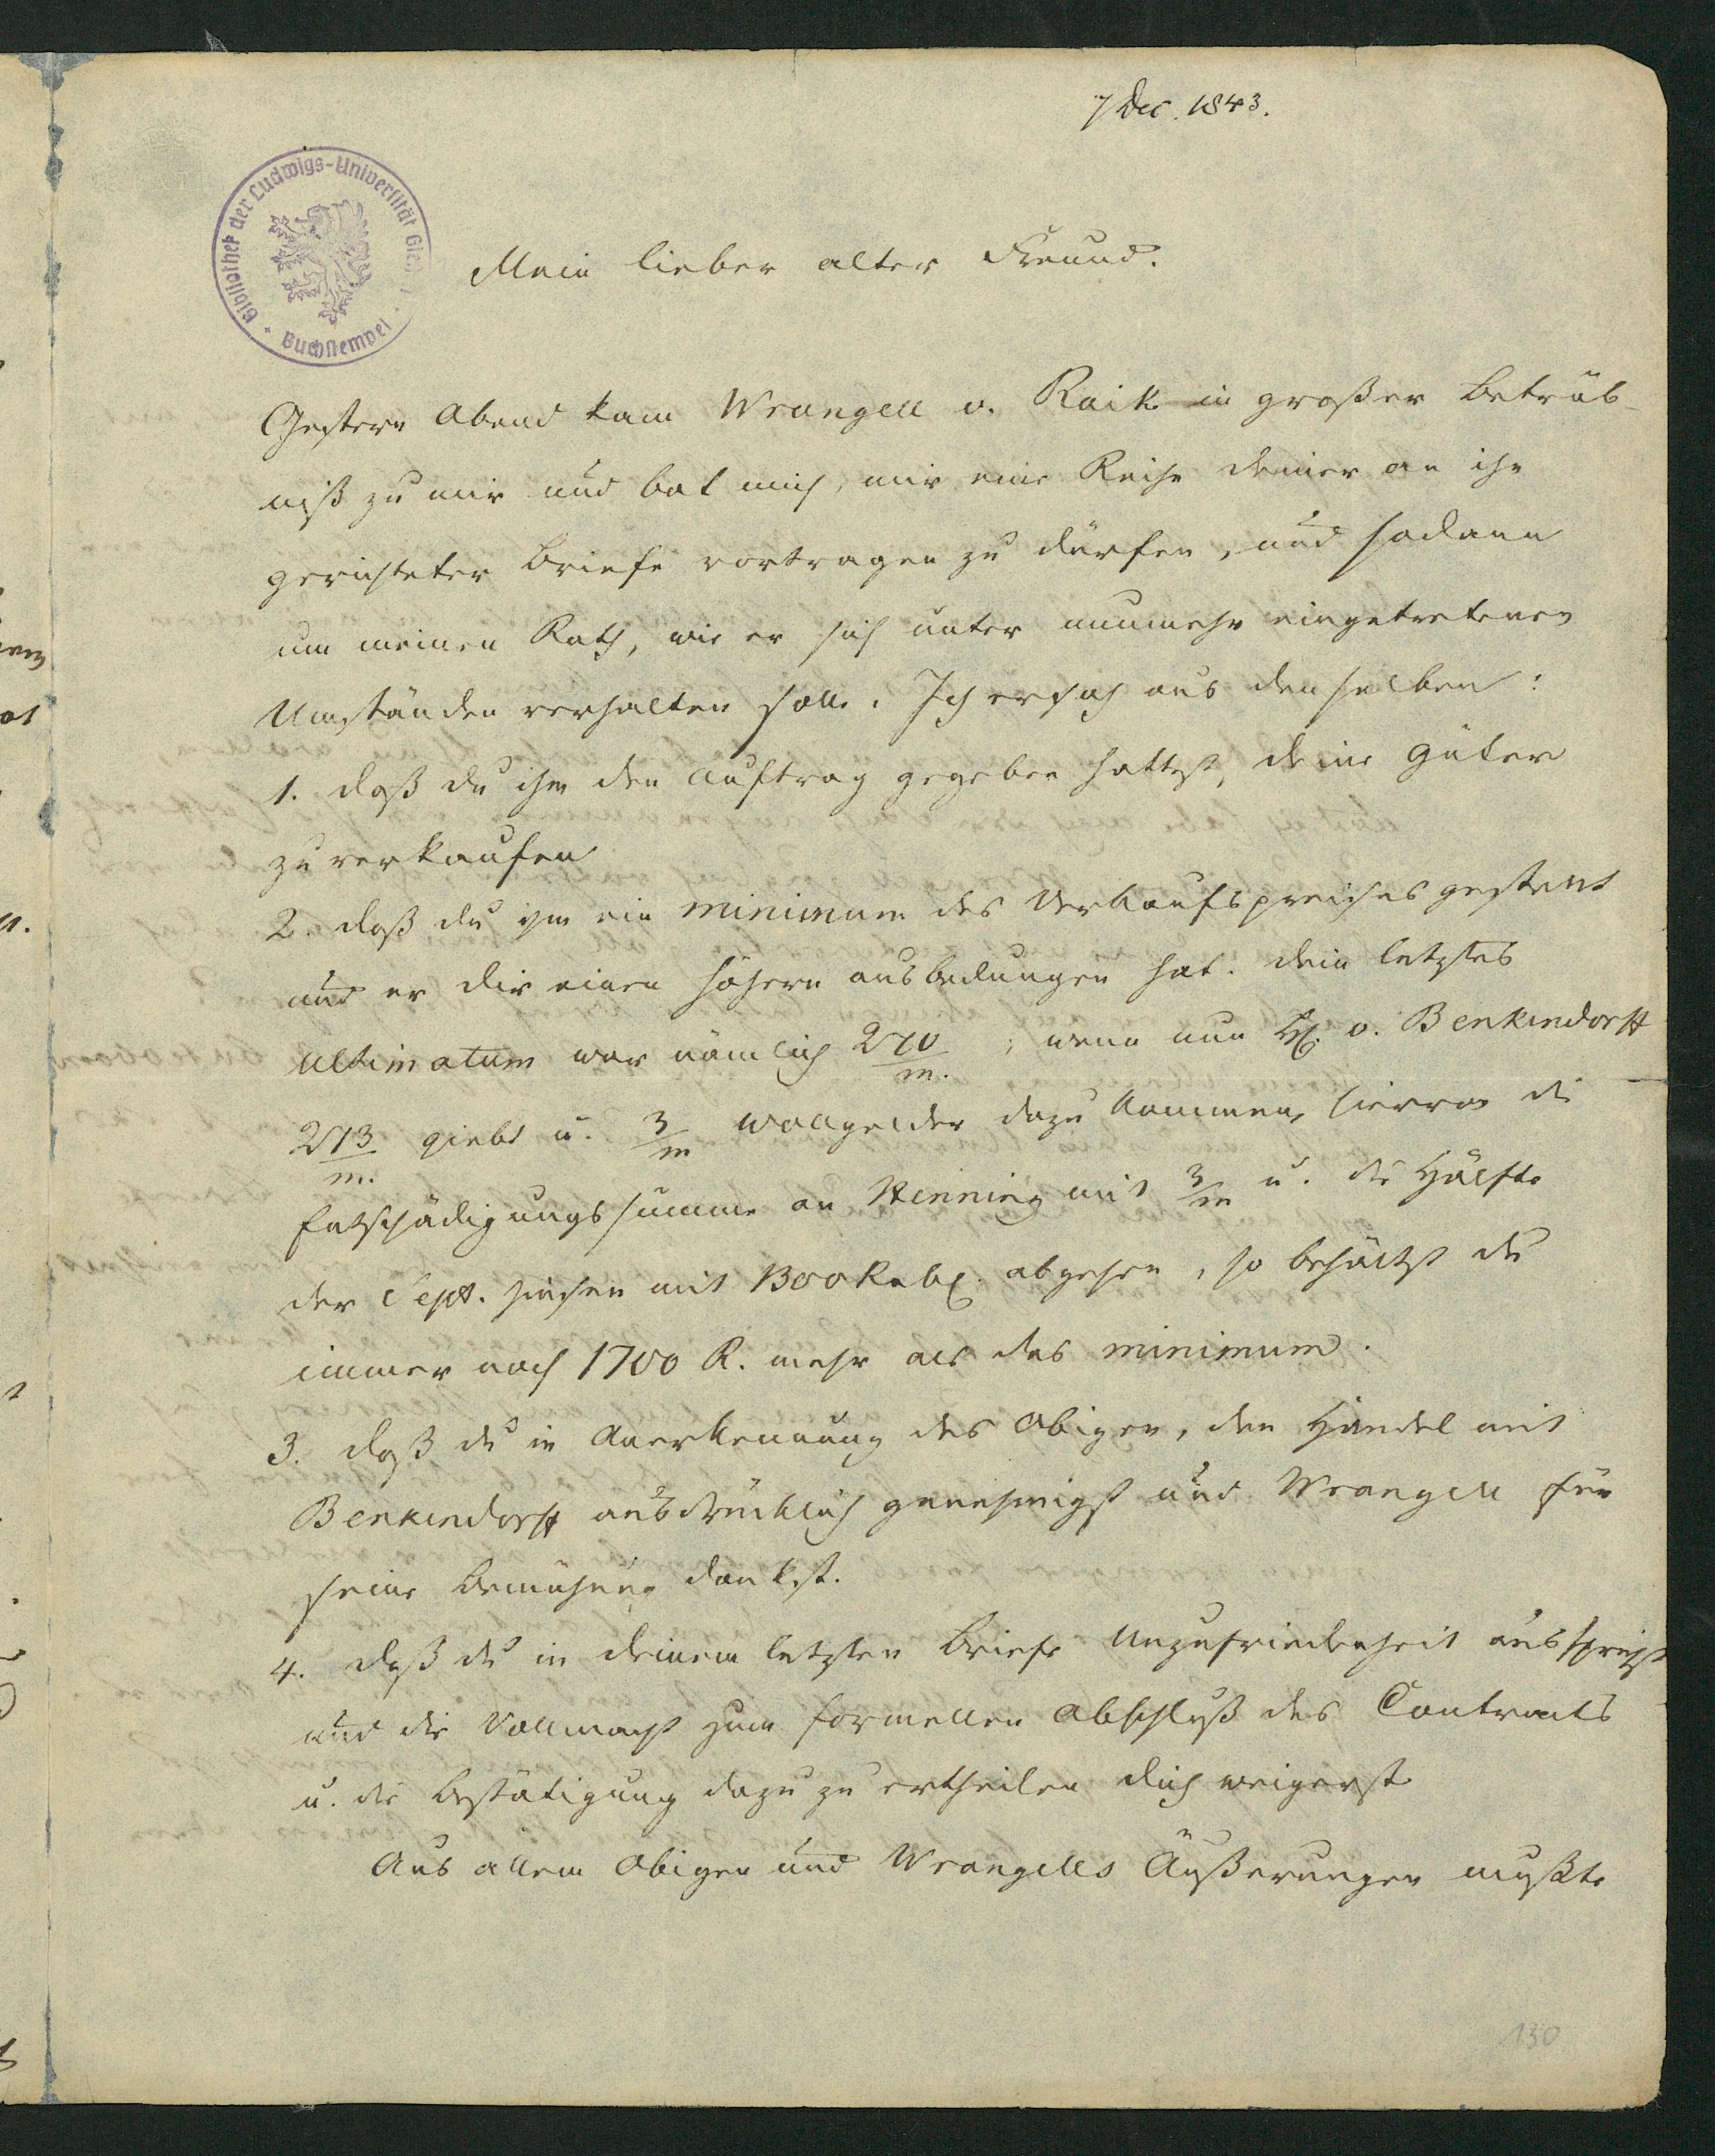 7 Dec. 1843.
Bibliothek der Ludwigs-Universität Gie
Buchstempel
Mein lieber alter Freund.
Gestern Abend kam Wrangell v. Raik in großer Betrüb-
niß zu mir und bat mich, mir eine Reihe deiner an ihn
gerichteter Briefe vortragen zu dürfen, und sodann
um meinen Rath, wie er sich unter nunmehr eingetretenen
Umständen verhalten solle. Ich ersah aus denselben:
1. daß du ihm den Auftrag gegeben hattest, deine Güter
zu verkaufen
2. daß du ihm ein minimum des Verkaufspreises gestellt
und er dir einen höhern ausbedungen hat. Dein letztes
Ultimatum war nämlich 270/m.; wenn nun H. v. Benkendorff
273/m. giebt u. 3/m Wollgelder dazu kommen, hiervon die
Entschädigungssumme an Henning mit 3/m u. die Hälfte
der Sept. Zinsen mit 1300 Rub. abgehen, so behältst du
immer noch 1700 R. mehr als das minimum.
3. daß du in Anerkennung des Obigen, den Handel mit
Benkendorff ausdrücklich genehmigst und Wrangell für
seine Bemühung dankst.
4. daß du in deinem letzten Briefe Unzufriedenheit aussprichst
und die Vollmacht zum formellen Abschluß des Contracts
u. die Bestätigung dazu zu ertheilen dich weigerst
Aus allem Obigen und Wrangells Äußerungen mußte
130